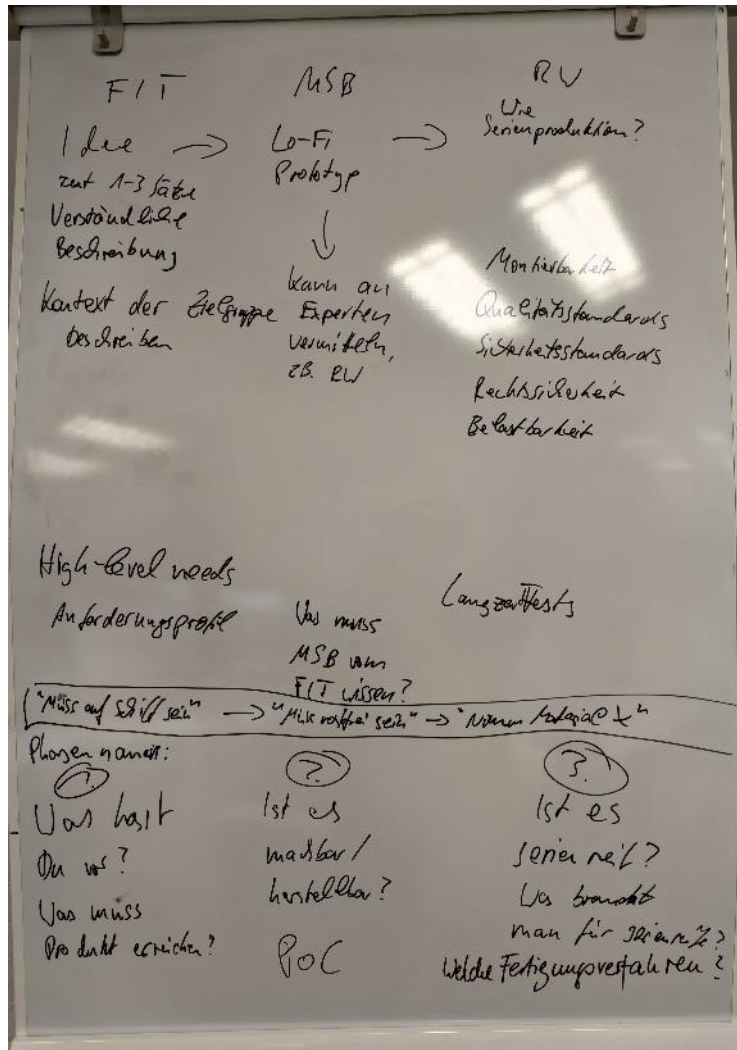 FIT
Idee →
zut 1-3 Sätze
Verständliche
Beschreibung
Kontext der Zielgruppe
beschreiben
MSB
Lo-Fi →
Prototyp
↓
kann an
Experten
vermitteln,
zB. RW
RW
Wie
Serienproduktion?
Montierbarkeit
Qualitätsstandards
Sicherheitsstandards
Rechtssicherheit
Belastbarkeit
High-level needs
Anforderungsprofil
Was muss
MSB vom
FIT wissen?
Langzeittests
"Muss auf Schiff sein" → "Muss rostfrei sein" → "Nehmen Material X"
Phasennamen:
1
Was hast
Du vor?
Was muss
Produkt erreichen?
2.
Ist es
machbar/
herstellbar?
PoC
3.
Ist es
serienreif?
Was braucht
man für Serienreife?
Welche Fertigungsverfahren?